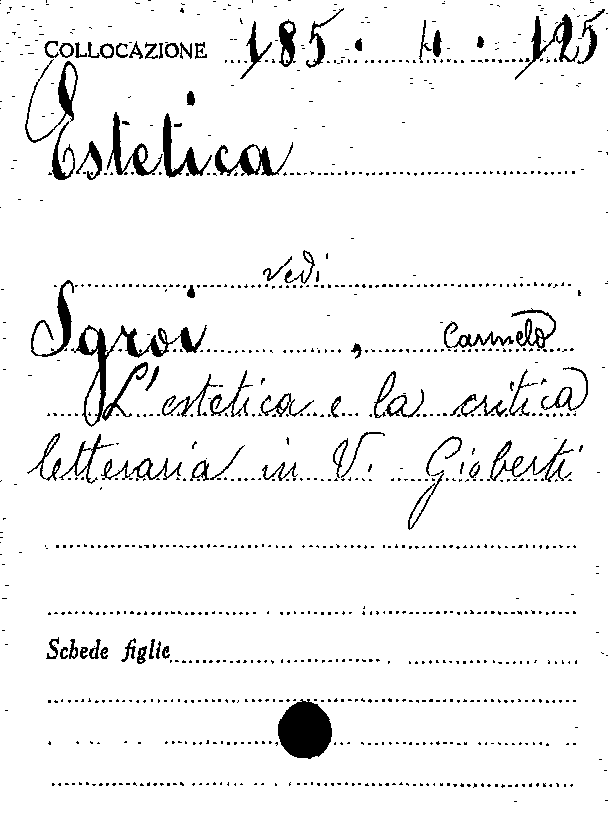 COLLOCAZIONE 185. H. 125
Estetica
vedi
Sgroi, Carmelo
L'estetica e la critica
letteraria in V. Gioberti
Schede figlie